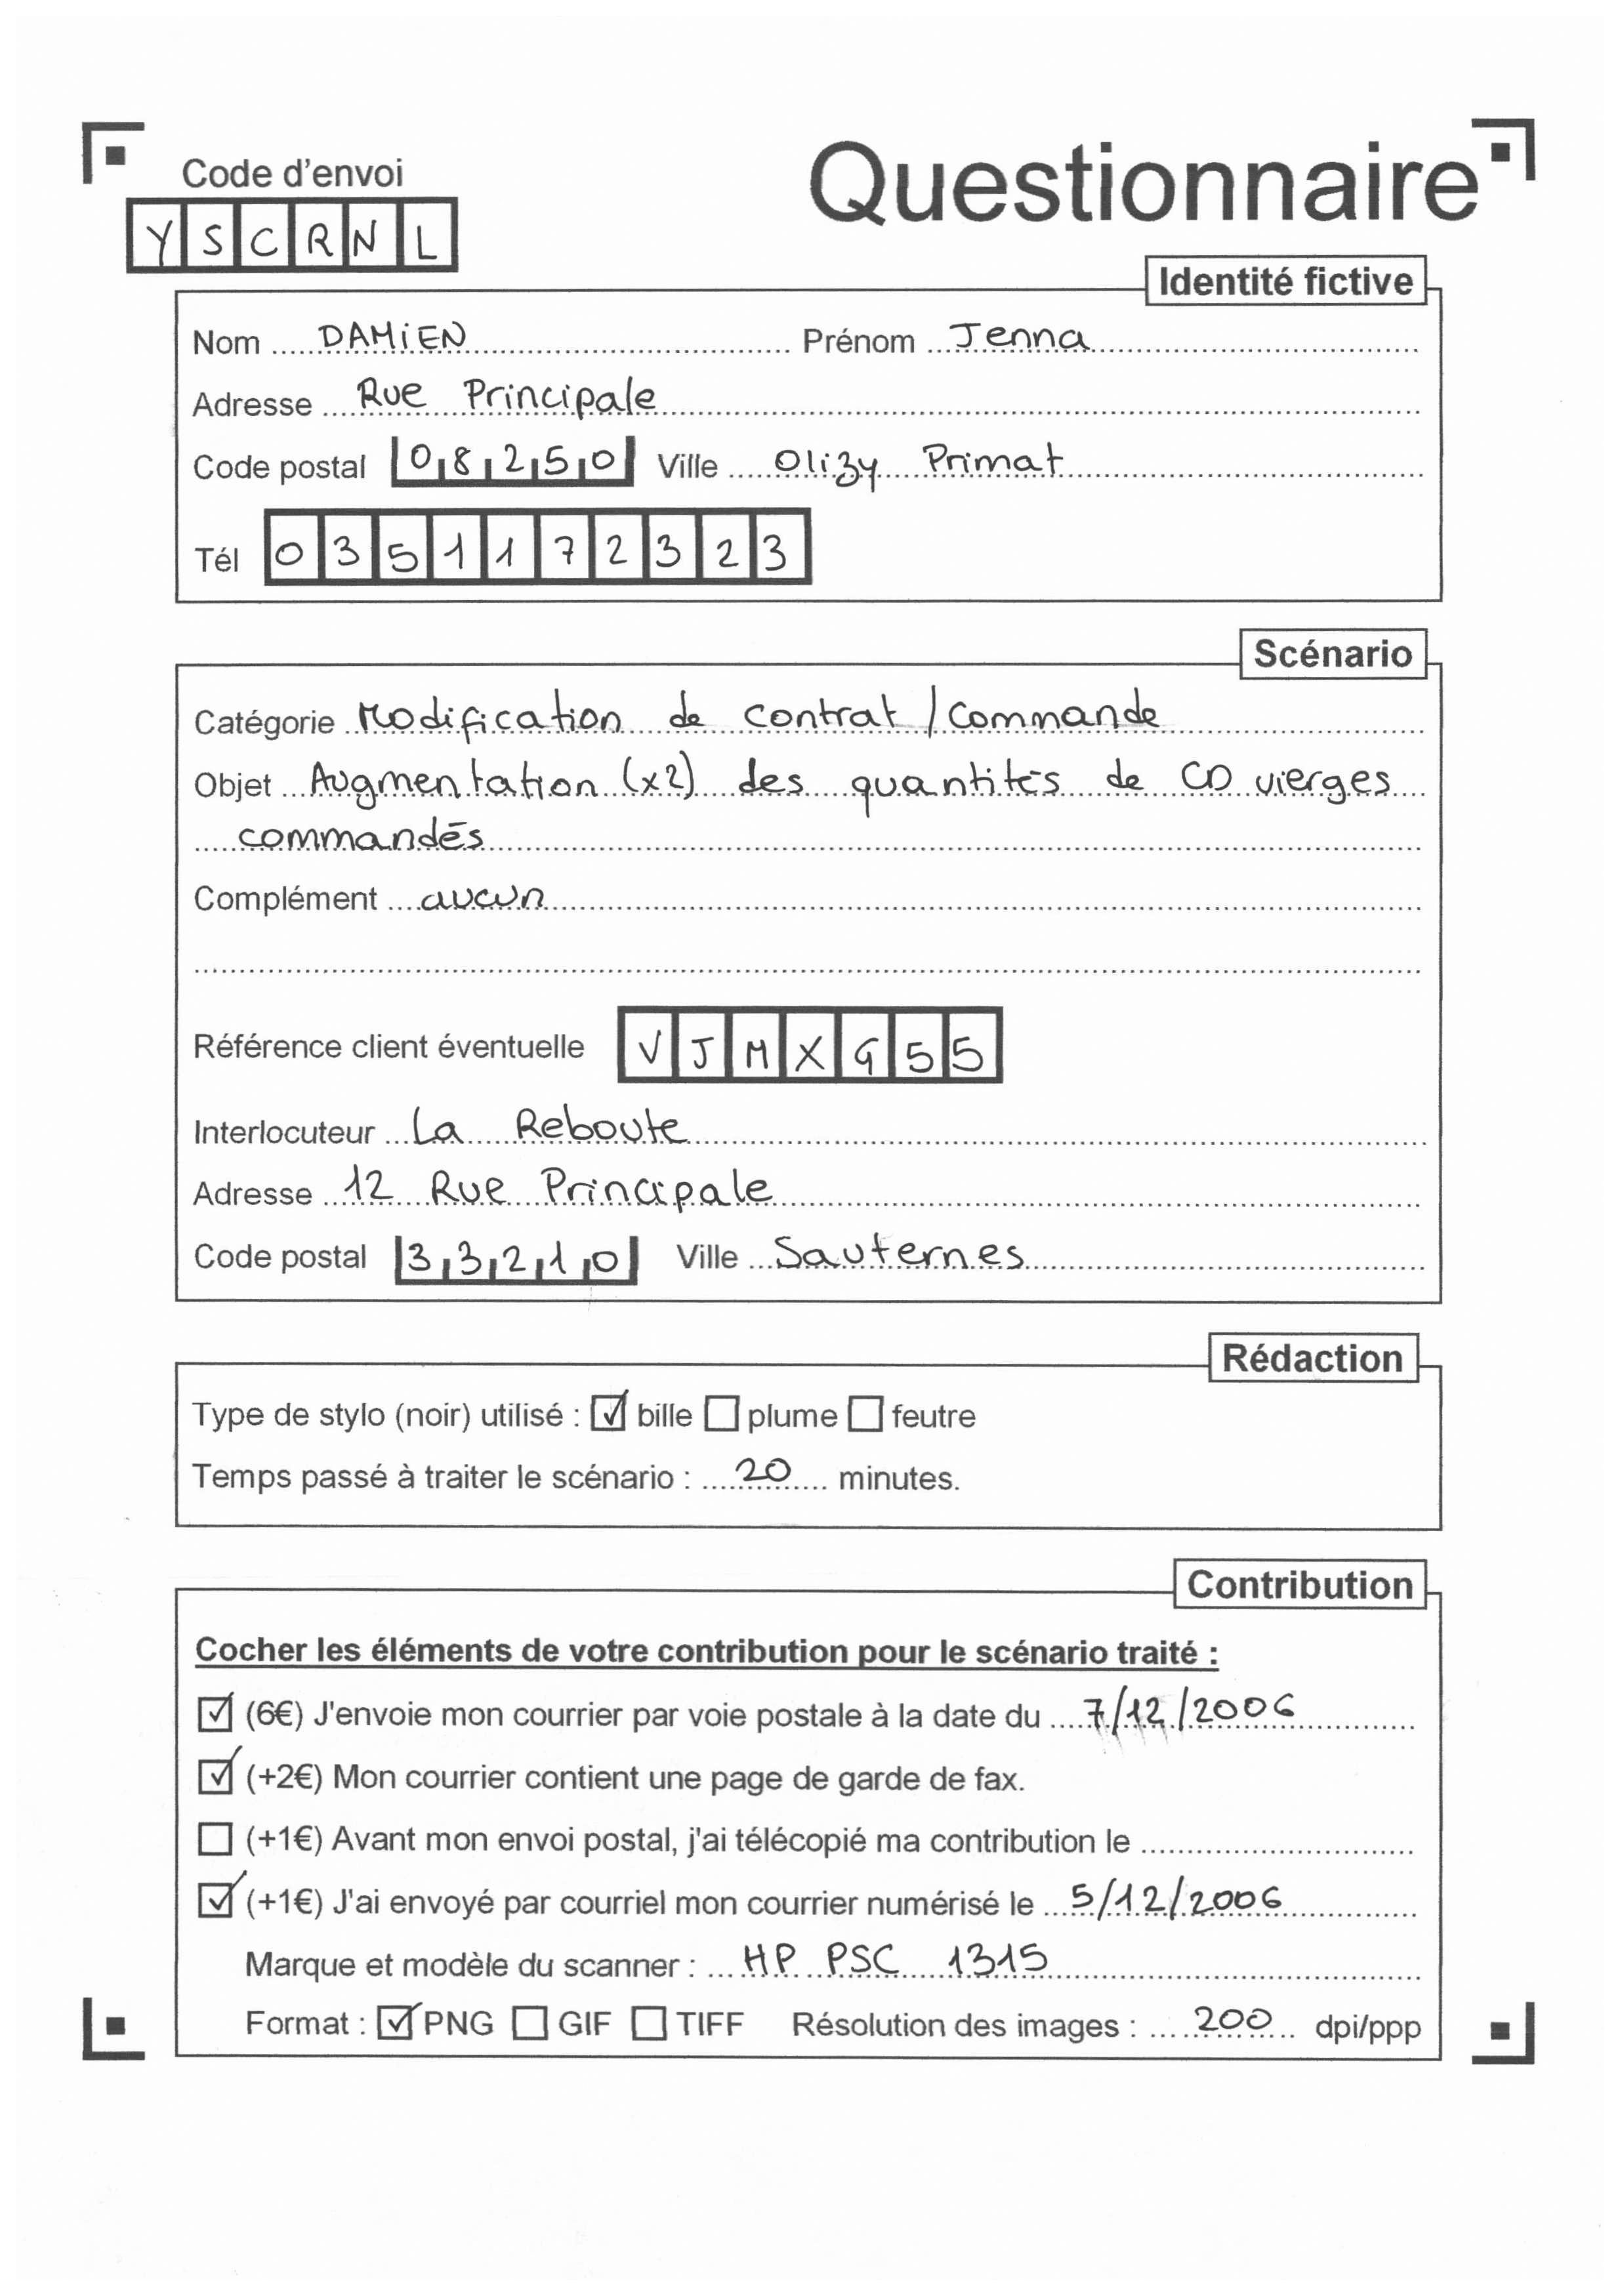 Code d'envoi
Questionnaire
YSCRNL
Identité fictive
Nom DAMiEN Prénom Jenna
Adresse Rue Principale
Code postal 08250 Ville Olizy Primat
Tél 0351172323
Scénario
Catégorie Modification de contrat / Commande
Objet Augmentation (x2) des quantités de CD vierges
commandés
Complément aucun
Référence client éventuelle VJMXG55
Interlocuteur La Reboute
Adresse 12 Rue Principale
Code postal 33210 Ville Sauternes
Rédaction
Type de stylo (noir) utilisé : bille plume feutre
Temps passé à traiter le scénario : 20 minutes.
Contribution
Cocher les éléments de votre contribution pour le scénario traité :
(6€) J'envoie mon courrier par voie postale à la date du 7/12/2006
(+2€) Mon courrier contient une page de garde de fax.
(+1€) Avant mon envoi postal, j'ai télécopié ma contribution le
(+1€) J'ai envoyé par courriel mon courrier numérisé le 5/12/2006
Marque et modèle du scanner : HP PSC 1315
Format : PNG GIF TIFF Résolution des images : 200 dpi/ppp